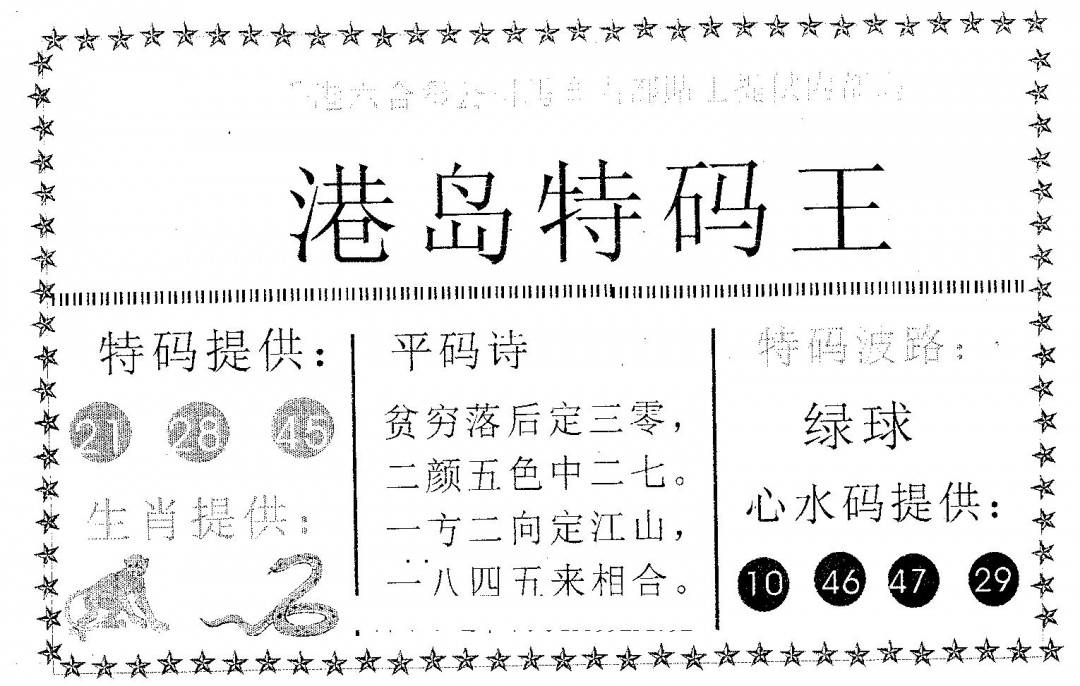 港岛特码王
特码提供：
21 28 45
生肖提供：
平码诗
贫穷落后定三零，
二颜五色中二七。
一方二向定江山，
一八四五来相合。
特码波路：
绿球
心水码提供：
10 46 47 29